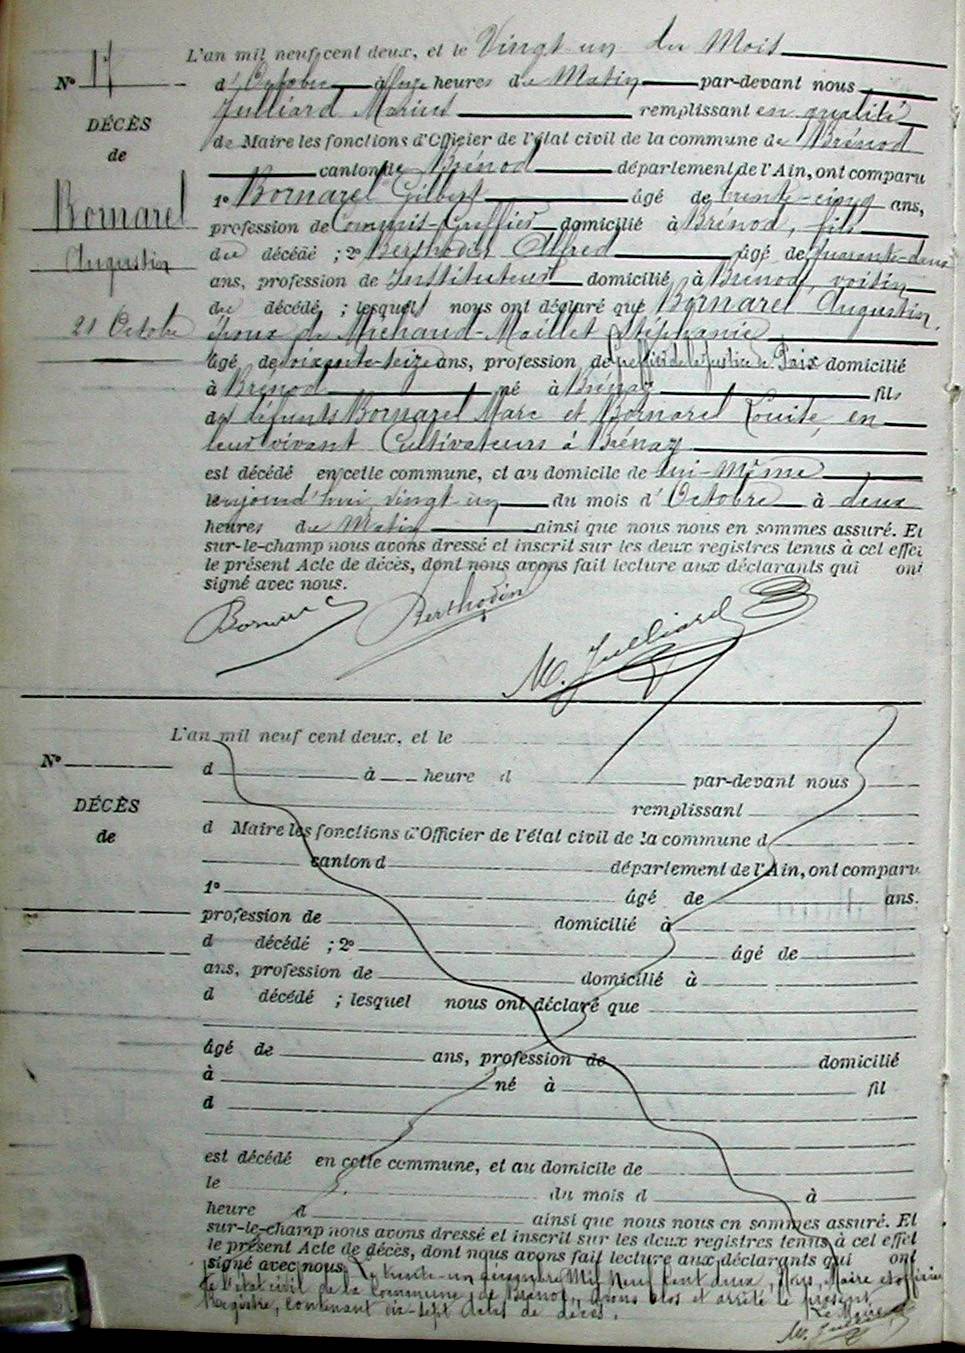 N° 17
DÉCÈS
de
Bornarel
Augustin
21 Octobre
L'an mil neuf cent deux, et le Vingt un du Mois
d'Octobre à onze heures du Matin par-devant nous
Julliard Marius remplissant en qualité
de Maire les fonctions d'Officier de l'état civil de la commune de Brénod
canton de Brénod département de l'Ain, ont comparu
1° Bornarel Gilbert âgé de trente-cinq ans,
profession de Commis-Greffier domicilié à Brénod, fils
du décédé ; 2° Berthodin Alfred âgé de quarante-deux
ans, profession de Instituteur domicilié à Brénod, voisin
du décédé ; lesquels nous ont déclaré que Bornarel Augustin,
époux de Michaud-Maillet Stéphanie
âgé de soixante-seize ans, profession de Greffier de la Justice de Paix domicilié
à Brénod né à Brénaz fils
des défunts Bornarel Marc et Bornarel Louise, en
leur vivant Cultivateurs à Brénaz
est décédé en cette commune, et au domicile de lui-Même
le aujourd'hui vingt un du mois d'Octobre à deux
heures du Matin ainsi que nous nous en sommes assuré. Et
sur-le-champ nous avons dressé et inscrit sur les deux registres tenus à cet effet
le présent Acte de décès, dont nous avons fait lecture aux déclarants qui ont
signé avec nous.
Berthodin
M. Julliard
N°
DÉCÈS
de
L'an mil neuf cent deux, et le
d à heure d par-devant nous
remplissant
d Maire les fonctions d'Officier de l'état civil de la commune d
canton d département de l'Ain, ont comparu
1° âgé de ans.
profession de domicilié à
d décédé ; 2° âgé de
ans, profession de domicilié à
d décédé ; lesquel nous ont déclaré que
âgé de ans, profession de domicilié
à né à fil
d
est décédé en cette commune, et au domicile de
le du mois d à
heure d ainsi que nous nous en sommes assuré. Et
sur-le-champ nous avons dressé et inscrit sur les deux registres tenus à cet effet
le présent Acte de décès, dont nous avons fait lecture aux déclarants qui ont
signé avec nous. Le trente-un décembre Mil Neuf Cent deux, Nous, Maire et officier
de l'état civil de la Commune de Brénod, avons clos et arrêté le présent
Registre, contenant dix-sept actes de décès.
Le Maire
M. Julliard